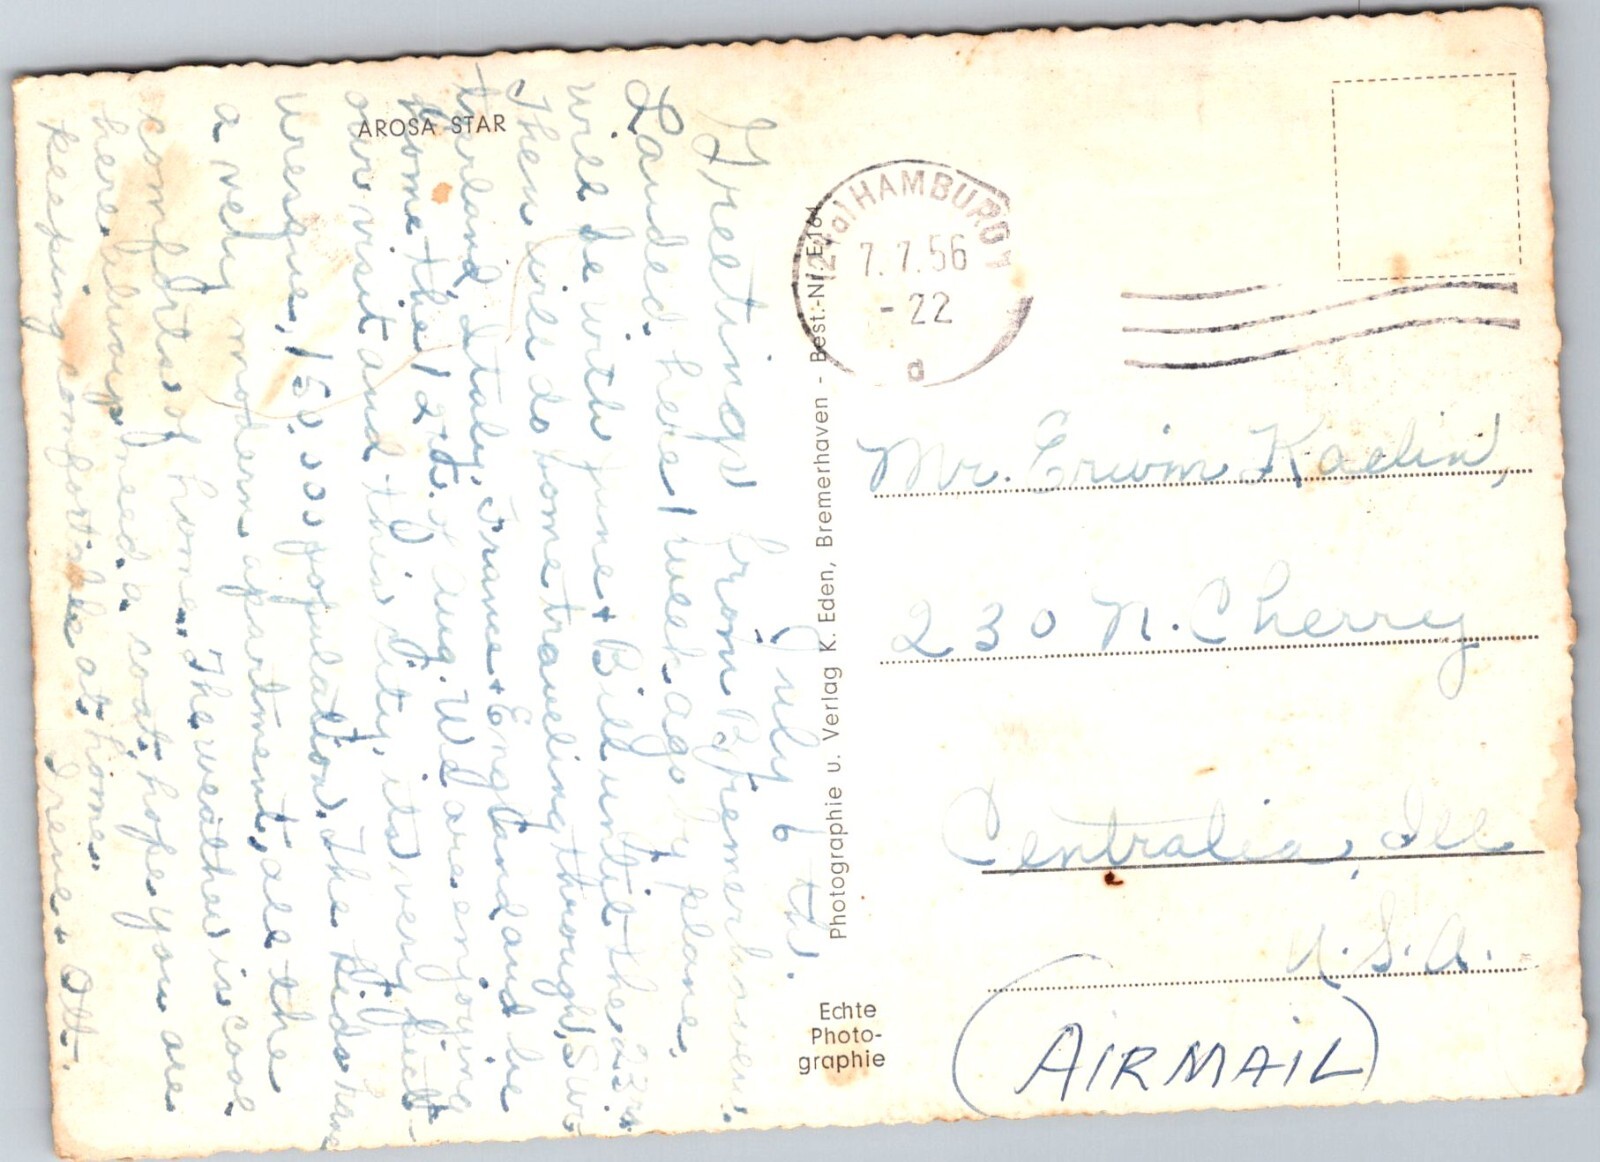 AROSA STAR
July 6 th.
Greetings from Bremerhaven.
Landed here 1 week ago by plane,
will be with June + Bill until the 23rd
Then will do some traveling through Swi-
tzerland, Italy, France + England and be
home the 12th. of Aug. We are enjoying
our visit and this city, its very pict-
uresque, 150,000 population. The kids have
a very modern apartment, all the
comforts of home. The weather is cool
here, always need a coat, hope you are
keeping comfortable at home.
Irene Ott.
Photographie u. Verlag K. Eden, Bremerhaven - Best.-Nr. E 164
Echte
Photo-
graphie
(24a) HAMBURG 1
7.7.56
- 22
a
Mr. Erwin Kaelin,
230 N. Cherry
Centralia, Ill
U.S.A.
(AIRMAIL)